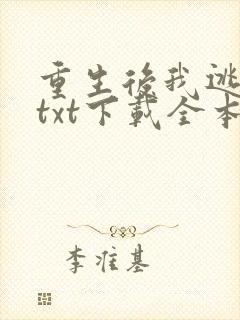 重生後我逃
txt下載全本
李准基